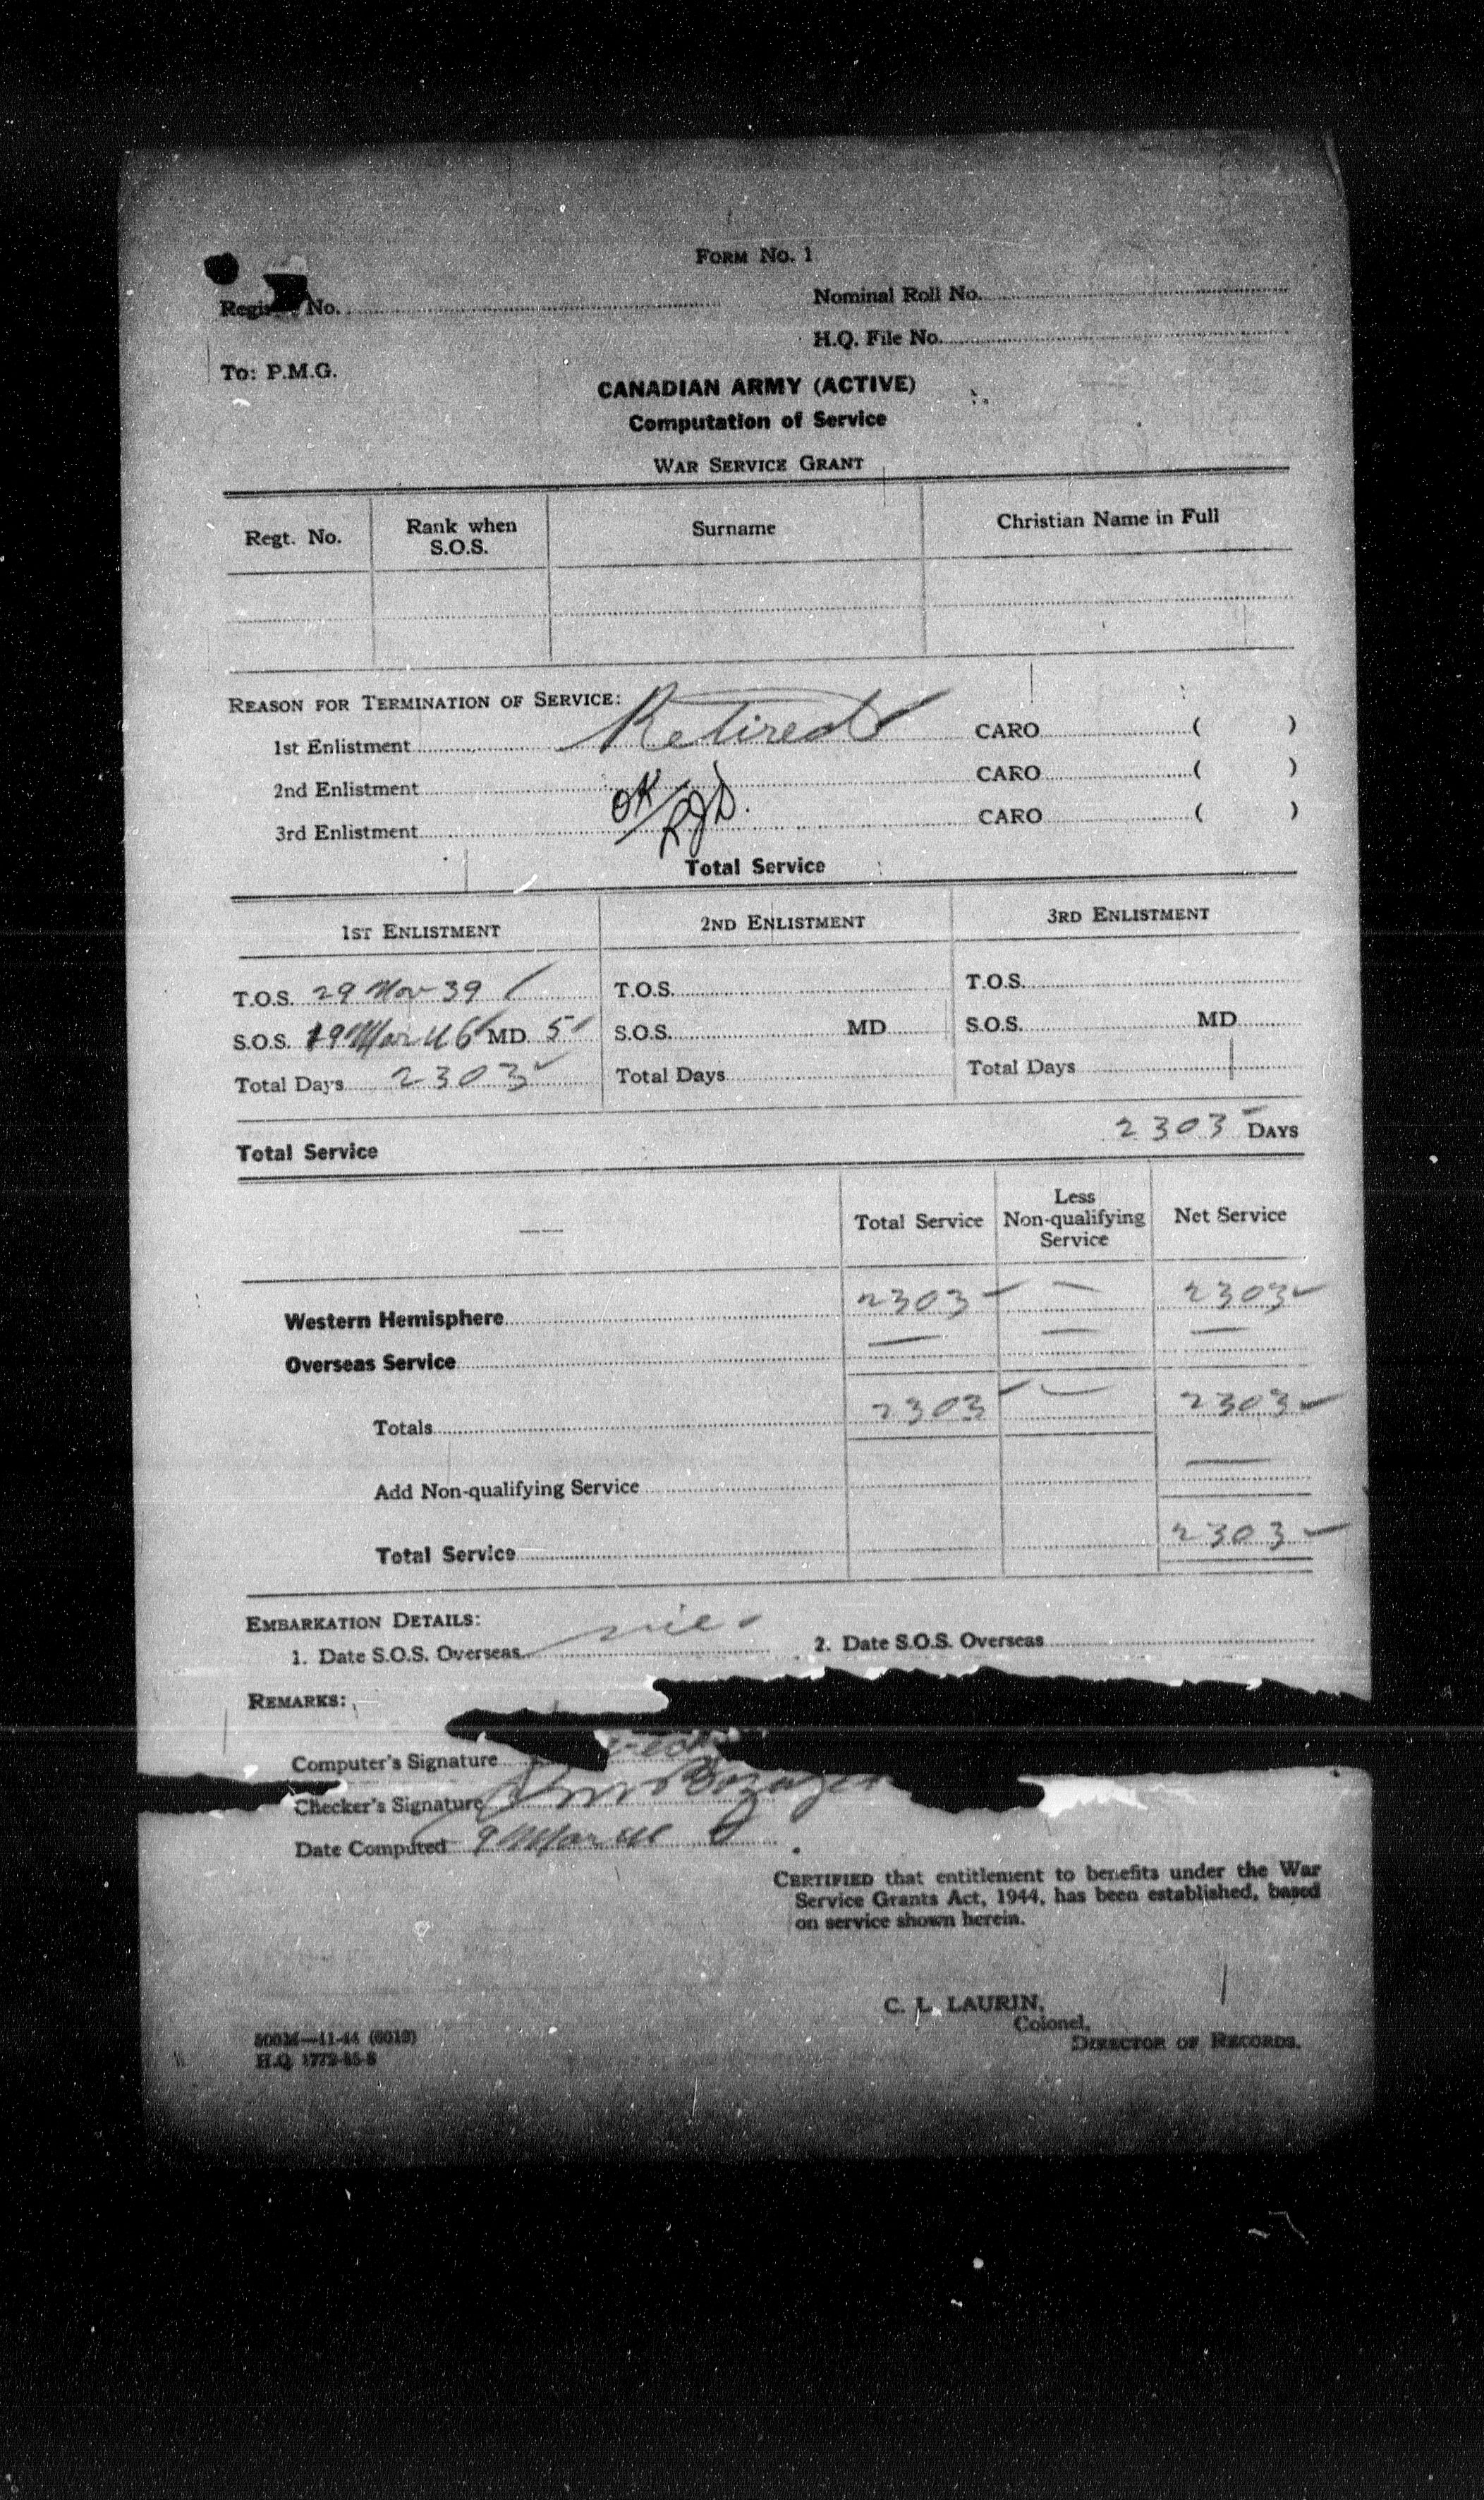 FORM No. 1
No.
Nominal Roll No.
H.Q. File No.
To: P.M.G.
CANADIAN ARMY (ACTIVE)
Computation of Service
WAR SERVICE GRANT
Regt. No. Rank when S.O.S. Surname Christian Name in Full
REASON FOR TERMINATION OF SERVICE:
1st Enlistment Retired CARO ( )
2nd Enlistment OK CARO ( )
3rd Enlistment CARO ( )
Total Service
1ST ENLISTMENT 2ND ENLISTMENT 3RD ENLISTMENT
T.O.S. 29 Nov 39 T.O.S. T.O.S.
S.O.S. 19 Mar 46 MD 5 S.O.S. MD S.O.S. MD
Total Days 2303 Total Days Total Days
Total Service 2303 DAYS
Total Service Less Non-qualifying Service Net Service
Western Hemisphere 2303 — 2303
Overseas Service — — —
Totals 2303 — 2303
Add Non-qualifying Service —
Total Service 2303
EMBARKATION DETAILS:
1. Date S.O.S. Overseas nil 2. Date S.O.S. Overseas
REMARKS:
Computer's Signature
Checker's Signature
Date Computed 9 Mar
CERTIFIED that entitlement to benefits under the War
Service Grants Act, 1944, has been established, based
on service shown herein.
C. L. LAURIN,
Colonel,
DIRECTOR OF RECORDS.
500M—11-44 (6019)
H.Q. 1772-45-8